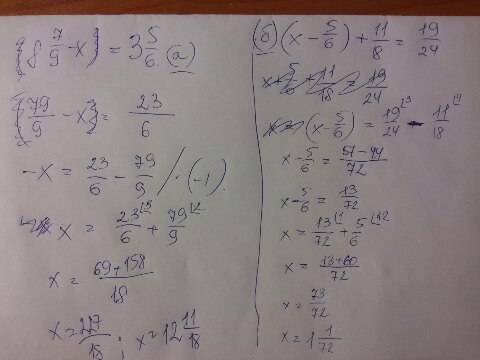 {8 7/9 - x} = 3 5/6 (а)
{79/9 - x} = 23/6
-x = 23/6 - 79/9 / · (-1)
x = 23/6 + 79/9
x = 69+158/18
x = 227/18 ; x = 12 11/18
(б) (x - 5/6) + 11/8 = 19/24
x + 5/6 + 11/18 = 19/24
(x - 5/6) = 19/24 - 11/18
x - 5/6 = 57-44/72
x - 5/6 = 13/72
x = 13/72 + 5/6
x = 13+60/72
x = 73/72
x = 1 1/72